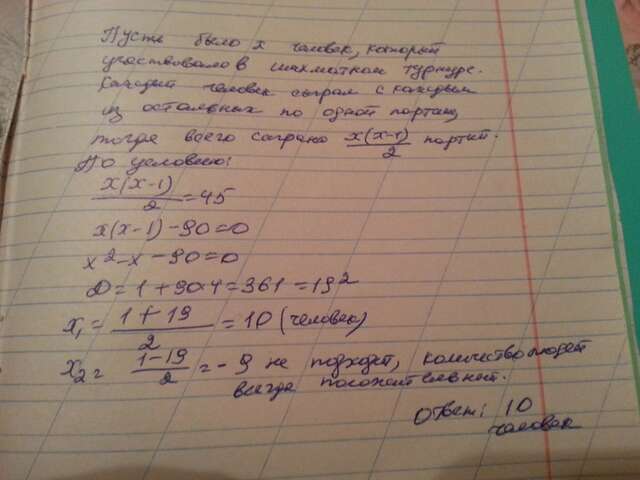 Пусть было x человек, который
участвовало в шахматном турнире.
Каждый человек сыграл с каждым
из остальных по одной партии,
тогда всего сыграно x(x-1)/2 партий.
По условию:
x(x-1)/2 = 45
x(x-1)-90=0
x²-x-90=0
D=1+90·4=361=19²
x₁= (1+19)/2 = 10 (человек)
x₂= (1-19)/2 = -9 не подходит, количество людей
всегда положительней.
Ответ: 10
человек